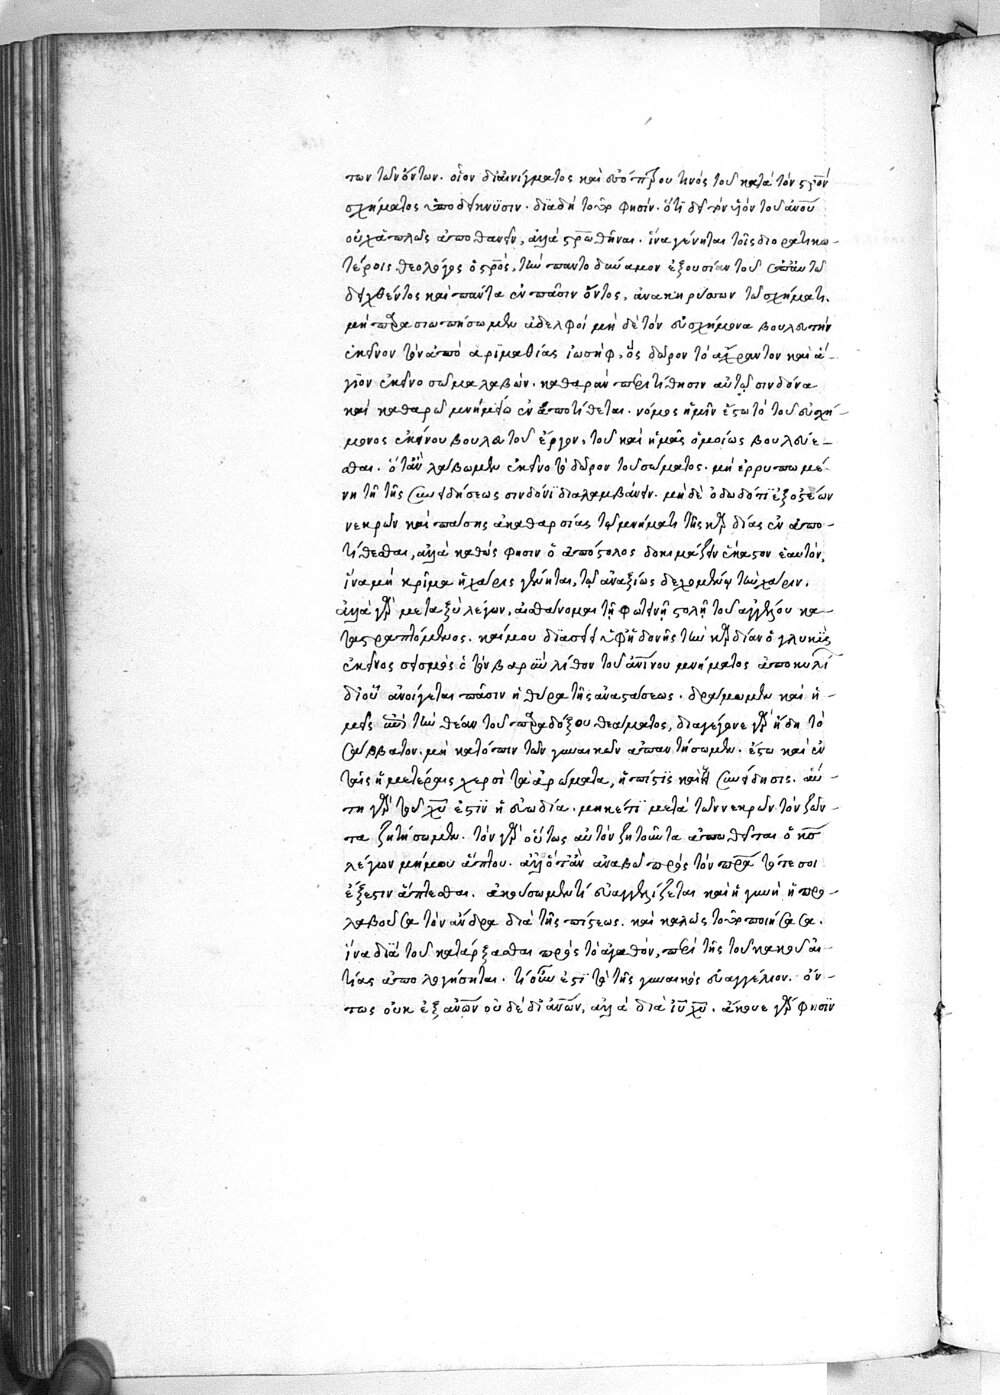 των τῶν ὄντων. οἷον δι αἰνίγματος καὶ ἐσόπτρου τινὸς τοῦ κατὰ τὸν στρὸν
σχήματος ὑποδεικνύσιν. διὰ δὴ τοῦτο φησίν. ὅτι δεῖ τὸν υἱὸν τοῦ ἀνου
οὐχ ἁπλῶς ἀποθανεῖν, ἀλλὰ στρωθῆναι. ἵνα γένηται τοῖς διορατικω-
τέροις θεολόγος ὁ στρός, τὴν παντοδύναμον ἐξουσίαν τοῦ ἐπ αὐτῶ
δειχθέντος καὶ πάντα ἐν πᾶσιν ὄντος, ἀνακηρύσσων τῶ σχήματι.
μὴ παρασιωπήσωμεν ἀδελφοί μὴ δὲ τὸν εὐσχήμονα βουλευτὴν
ἐκεῖνον τὸν ἀπὸ ἀριμαθίας ἰωσὴφ, ὃς δῶρον τὸ ἄχραντον καὶ ἅ-
γϊον ἐκεῖνο σῶμα λαβών. καθαρᾶν περιτίθησιν αὐτῷ σινδόνα
καὶ καθαρῶ μνημείω ἐναποτίθεται. νόμος ἡμῖν ἔστω τὸ τοῦ εὐσχή-
μονος ἐκείνου βουλευτοῦ ἔργον, τοῦ καὶ ἡμᾶς ὁμοίως βουλεύε-
σθαι. ὅταν λάβωμεν ἐκεῖνο τὸ δῶρον τοῦ σώματος. μὴ ἐρρυπωμέ-
νη τῇ τῆς συνειδήσεως σινδόνϊ διαλαμβάνειν. μὴ δὲ ὀδωδότϊ ἐξ ὀστέων
νεκρῶν καὶ πάσης ἀκαθαρσίας τῷ μνήματι τῆς καρδίας ἐναπο-
τίθεσθαι, ἀλλὰ καθώς φησιν ὁ ἀπόστολος δοκιμάζειν ἕκαστον ἑαυτὸν,
ἵνα μὴ κρῖμα ἡ χάρις γένηται, τῷ ἀναξίως δεχομένῳ τὴν χάριν.
ἀλλὰ γὰρ μεταξὺ λέγων, αἰσθάνομαι τῇ φωτεινῇ στολῇ τοῦ ἀγγέλου κα-
ταστραπτόμενος. καί μου διασείει ὑφ ἡδονῆς τὴν καρδίαν ὁ γλυκὺς
ἐκεῖνος σεισμὸς ὁ τὸν βαρὺν λίθον τοῦ ἀνίνου μνήματος ἀποκυλί
δι οὗ ἀνοίγεται πᾶσιν ἡ θύρα τῆς ἀναστάσεως. δράμωμεν καὶ ἡ-
μεῖς ἐπὶ τὴν θέαν τοῦ παραδόξου θεάματος, διαγέγονε γὰρ ἤδη τὸ
σάββατον. μὴ κατόπιν τῶν γυναικῶν ἀπαντήσωμεν. ἔστω καὶ ἐν
ταῖς ἡμετέραις χερσὶ τὰ ἀρώματα, ἡ πίστϊς καὶ ἡ συνείδησις. αὕ-
τη γὰρ τοῦ χυ ἐστϊν ἡ εὐωδία. μηκέτϊ μετὰ τῶν νεκρῶν τὸν ζῶν-
τα ζητήσωμεν. τὸν γὰρ οὕτως αὐτὸν ζητοῦντα ἀπωθεῖται ὁ κς
λέγων μή μου ἅπτου. ἀλλ ὅταν ἀναβῶ πρὸς τὸν πρα τότε σοι
ἔξεστιν ἅπτεσθαι. ἀκούσωμεν τί εὐαγγελίζεται καὶ ἡ γυνὴ ἡ προ-
λαβοῦσα τὸν ἄνδρα διὰ τῆς πίστεως. καὶ καλῶς τοῦτο ποιήσασα.
ἵνα διὰ τοῦ κατάρξασθαι πρὸς τὸ ἀγαθόν, περὶ τῆς τοῦ κακοῦ αἰ-
τίας ἀπολογήσηται. τί οὖν ἐστὶ τὸ τῆς γυναικὸς εὐαγγέλιον. ὄν-
τως οὐκ ἐξ ἀνῶν οὐ δὲ δι ἀνῶν, ἀλλὰ διὰ ιυ χυ. ἄκουε γὰρ φησϊν